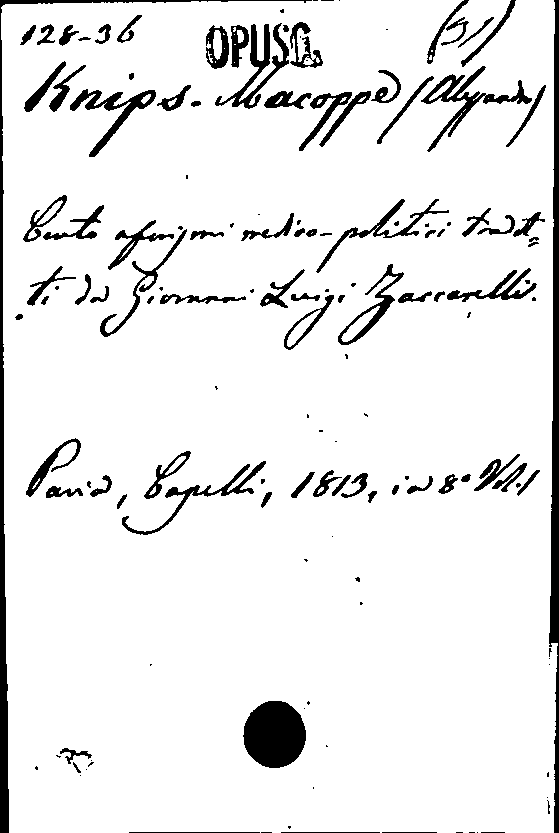 128-36 OPUSC. (31)
Knips-Macoppe (Alessandro)
Cento aforismi medico-politici tradot=
ti da Giovanni Luigi Zaccarelli.
Pavia, Capelli, 1813, in 8º Vol. 1